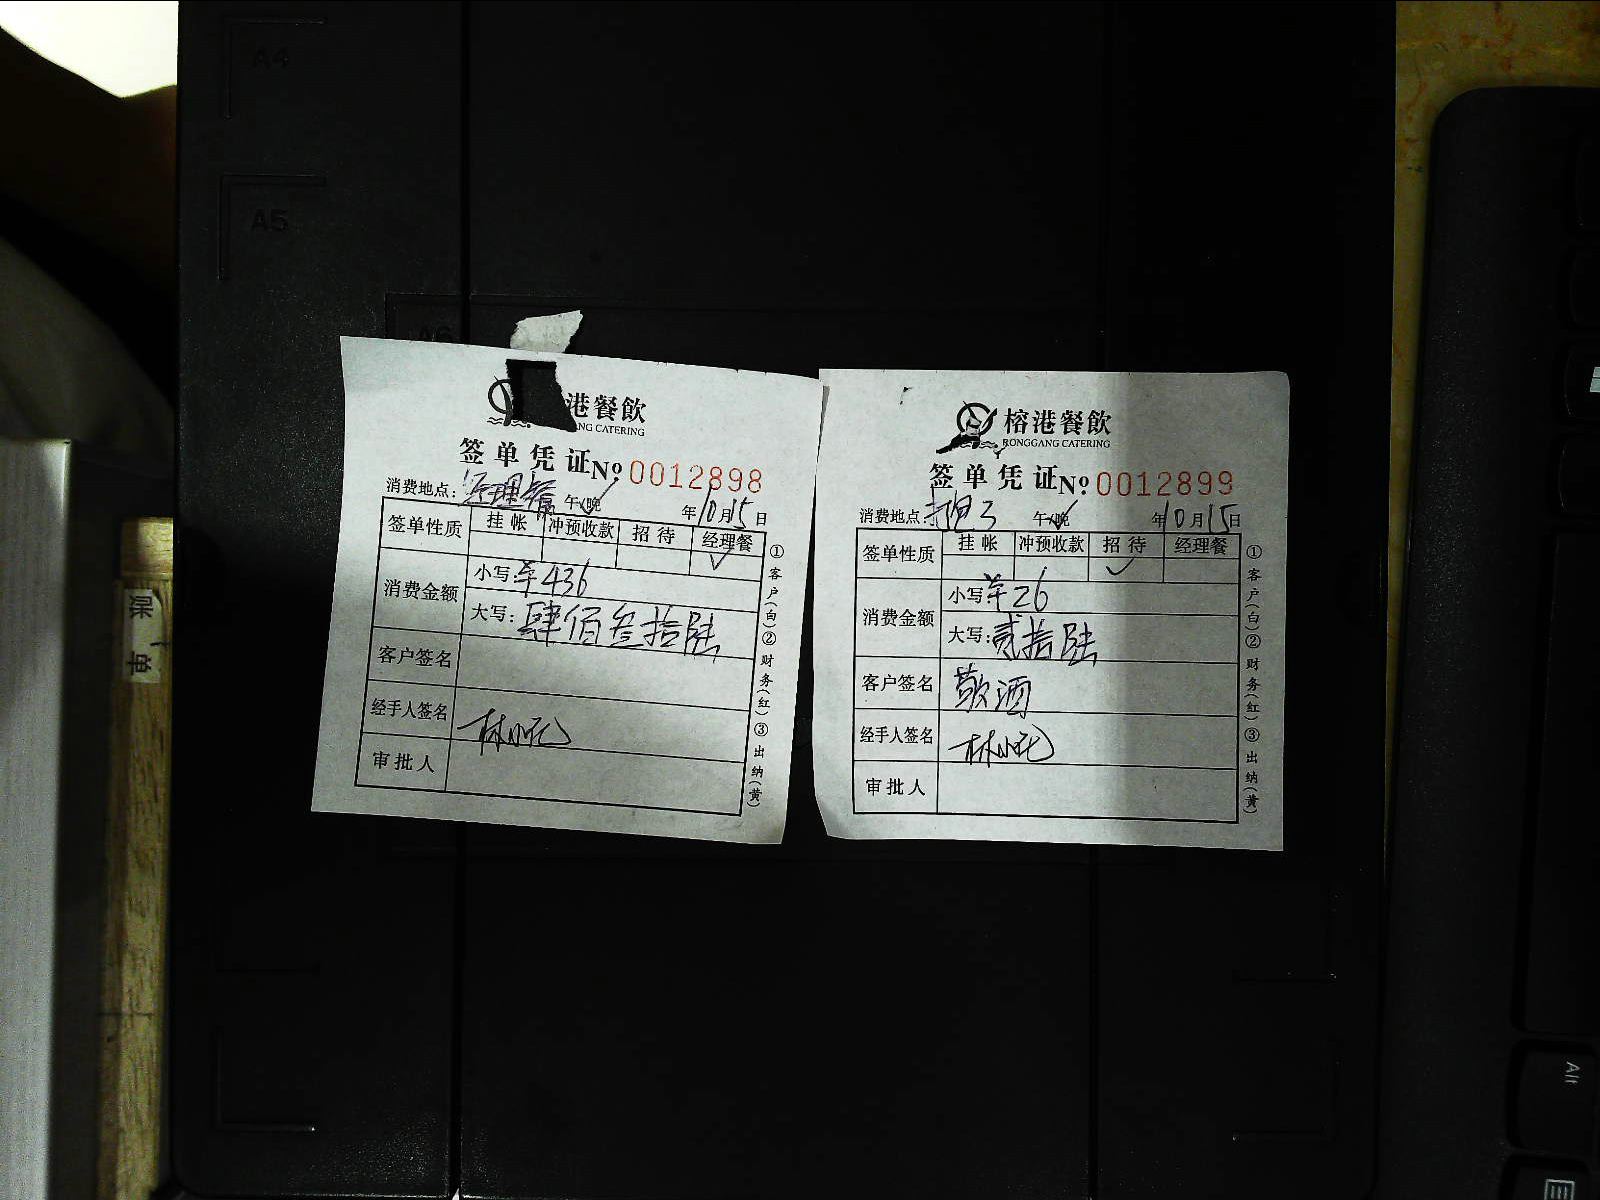 A4
A5
A6
港餐飲
NG CATERING
签单凭证 № 0012898
消费地点：经理餐 午/晚 年10月15日
签单性质 挂帐 冲预收款 招待 经理餐
✓
消费金额 小写：羊436
大写：肆佰叁拾陆
客户签名
经手人签名
审批人
①客户(白)②财务(红)③出纳(黄)
榕港餐飲
RONGGANG CATERING
签单凭证 № 0012899
消费地点： 午/晚 年10月15日
签单性质 挂帐 冲预收款 招待 经理餐
✓
消费金额 小写：羊26
大写：贰拾陆
客户签名 敬酒
经手人签名
审批人
①客户(白)②财务(红)③出纳(黄)
Alt